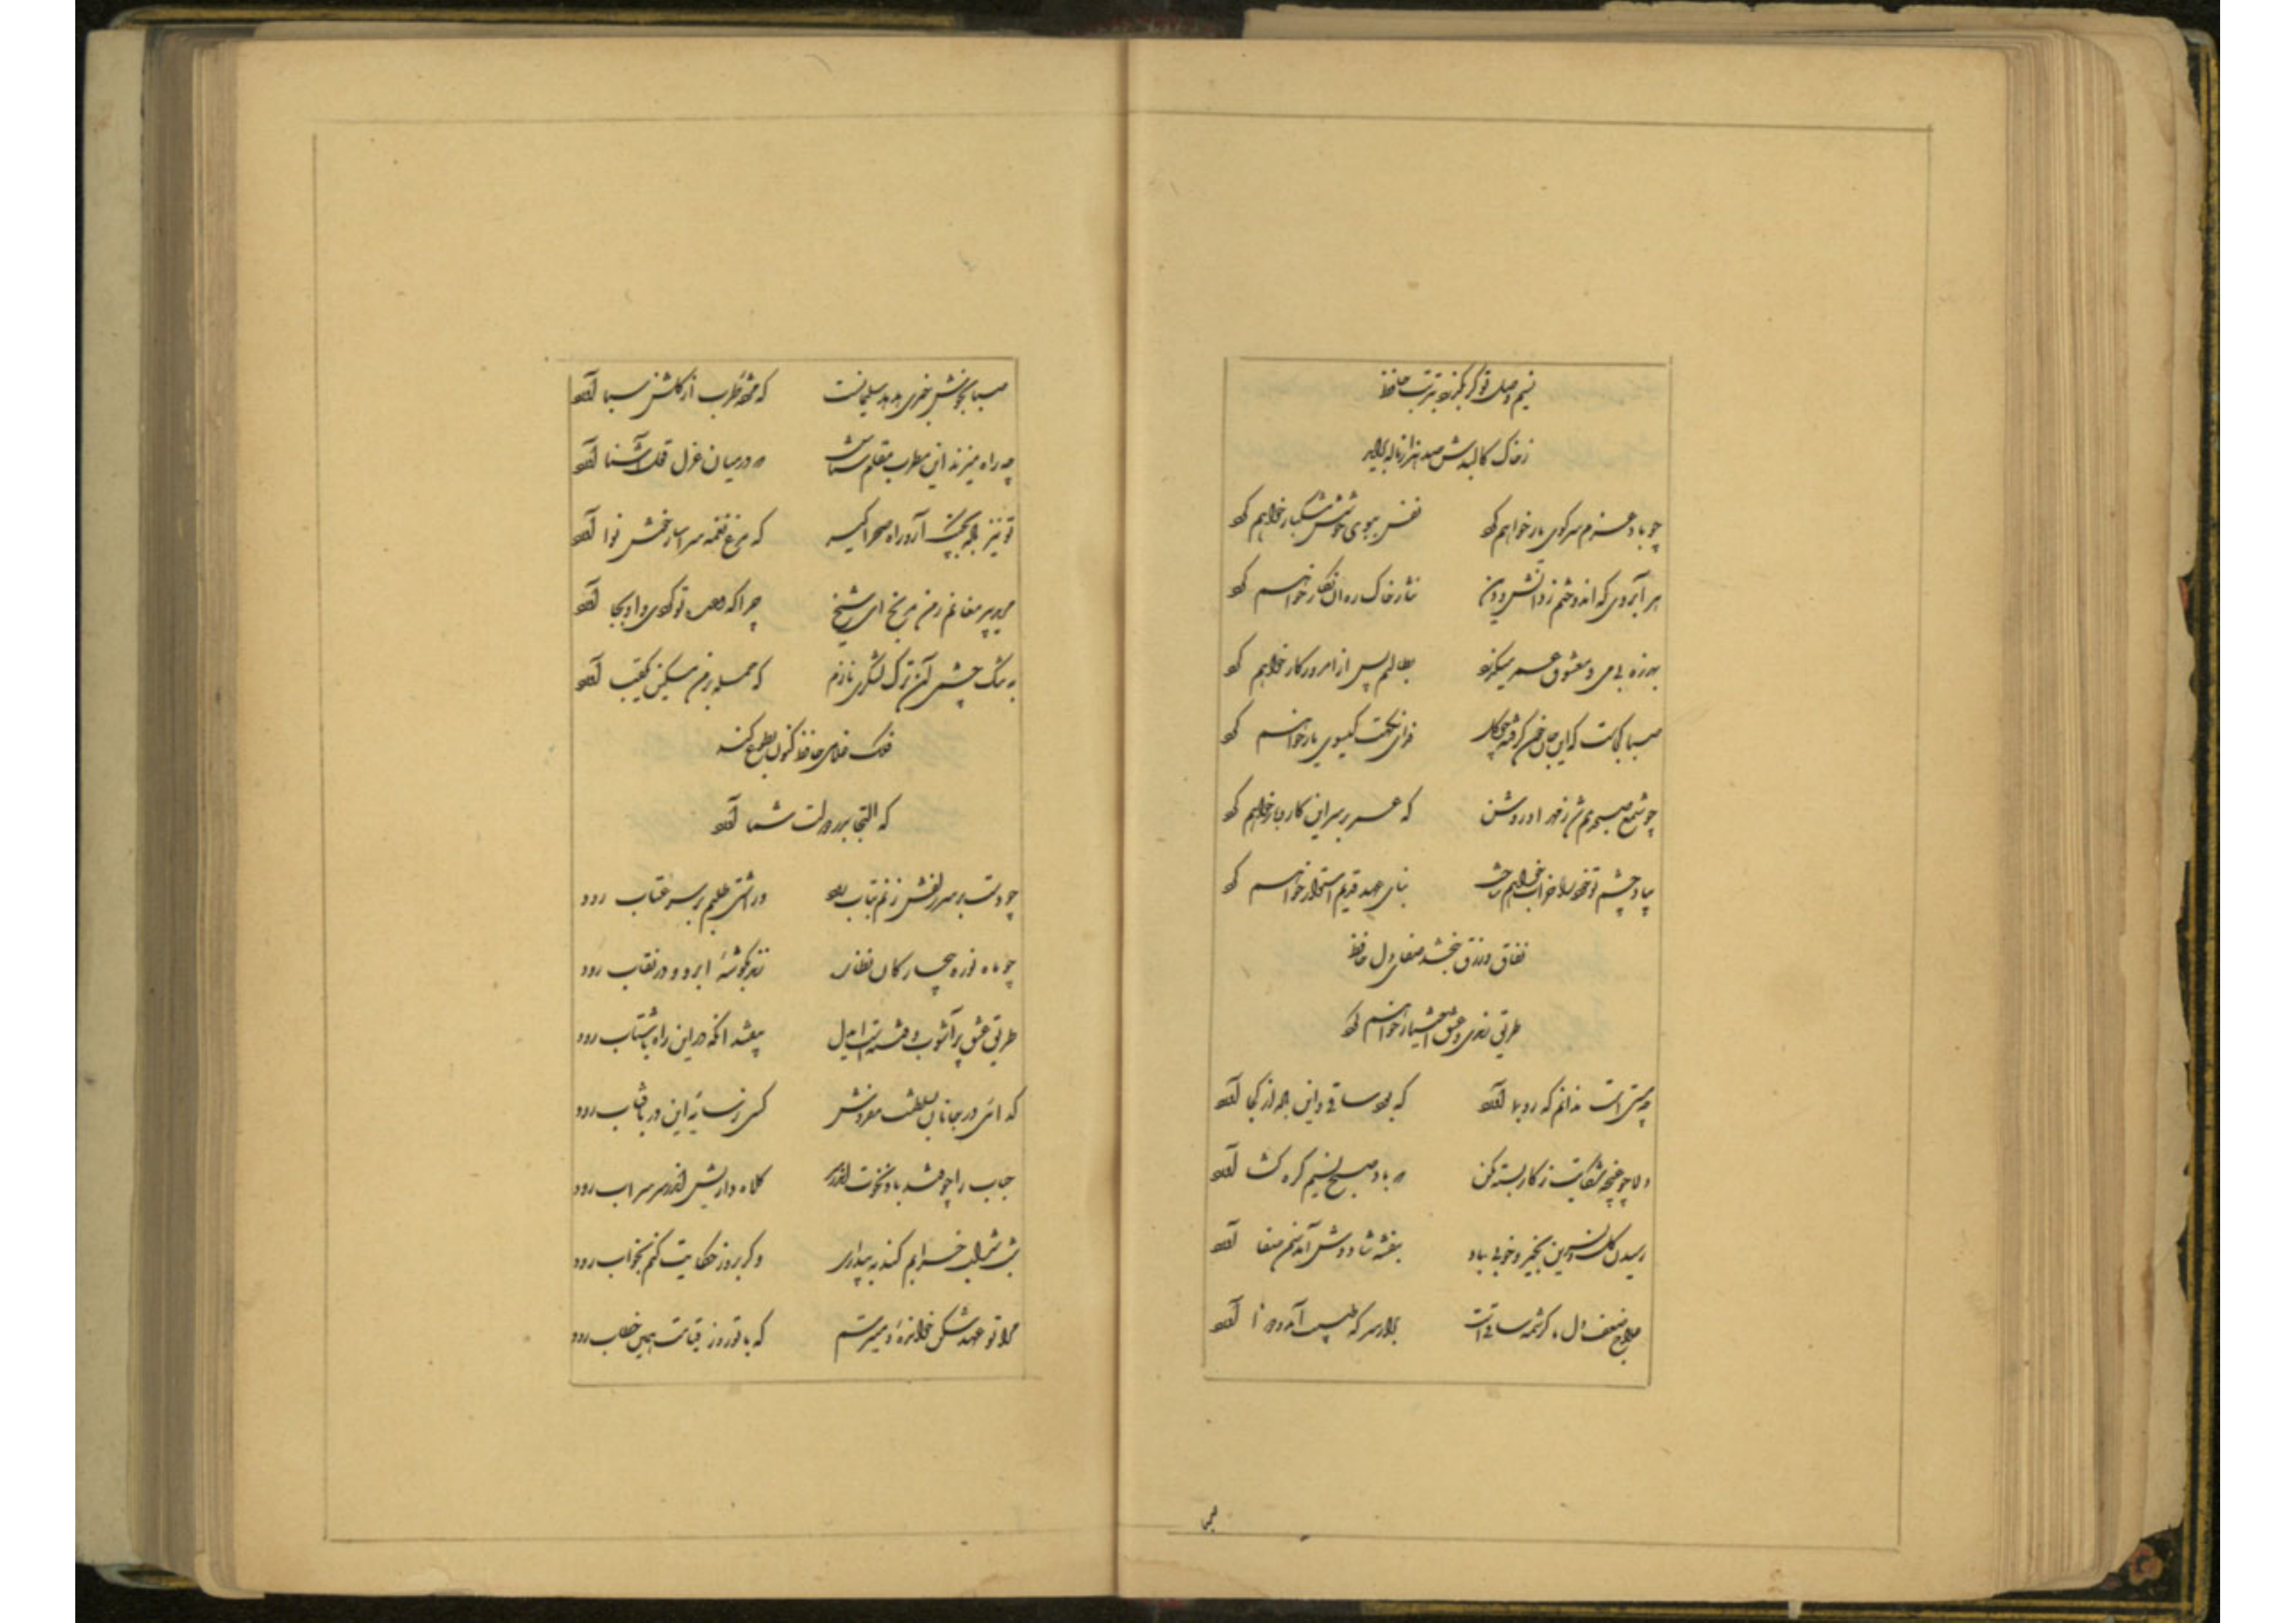 نسیم وصل تو گر بگذرد بتربت حافظ
زخاک کالبدش صد هزار ناله برآید
چو باد عزم سر کوی یار خواهم کرد نفس ببوی خوشش مشکبار خواهم کرد
هر آبروی که اندوختم ز دانش و دین نثار خاک ره آن نگار خواهم کرد
بهرزه بی می و معشوق عمر میگذرد بطالتم بس از امروز کار خواهم کرد
صبا کجاست که این جان خون گرفته چو گل فدای نکهت گیسوی یار خواهم کرد
چو شمع صبحدمم شد ز مهر او روشن که عمر بر سر این کار و بار خواهم کرد
بیاد چشم تو خود را خراب خواهم ساخت بنای عهد قدیم استوار خواهم کرد
نفاق و زرق نبخشد صفای دل حافظ
طریق رندی و عشق اختیار خواهم کرد
چه مستی است ندانم که رو بما آورد که بود ساقی و این باده از کجا آورد
دلا چو غنچه شکایت ز کار بسته مکن که باد صبح نسیم گره گشا آورد
رسیدن گل و نسرین بخیر و خوبی باد بنفشه شاد و خوش آمد سمن صفا آورد
علاج ضعف دل ما کرشمه ساقیست برآر سر که طبیب آمد و دوا آورد
صبا
صبا بخوش خبری هدهد سلیمانست که مژده طرب از گلشن سبا آورد
چه راه میزند این مطرب مقام شناس که در میان غزل قول آشنا آورد
تو نیز باده بچنگ آر و راه صحرا گیر که مرغ نغمه سرا ساز خوش نوا آورد
مرید پیر مغانم ز من مرنج ای شیخ چرا که وعده تو کردی و او بجا آورد
به تنگ چشمی آن ترک لشکری نازم که حمله بر من مسکین یکقبا آورد
فلک غلامی حافظ کنون بطوع کند
که التجا بدر دولت شما آورد
چو دست بر سر زلفش زنم بتاب رود ور آشتی طلبم بر سر عتاب رود
چو ماه نو ره بیچارگان نظاره زند بگوشه ابرو و در نقاب رود
طریق عشق پرآشوب و فتنه است ایدل بیفتد آنکه در این راه با شتاب رود
گدائی در جانان بسلطنت مفروش کسی ز سایه این در بآفتاب رود
حباب را چو فتد باد نخوت اندر سر کلاه داریش اندر سر سراب رود
شب شراب خرابم کند به بیداری وگر بروز حکایت کنم بخواب رود
مرا تو عهد شکن خوانده و میترسم که با تو روز قیامت همین خطاب رود